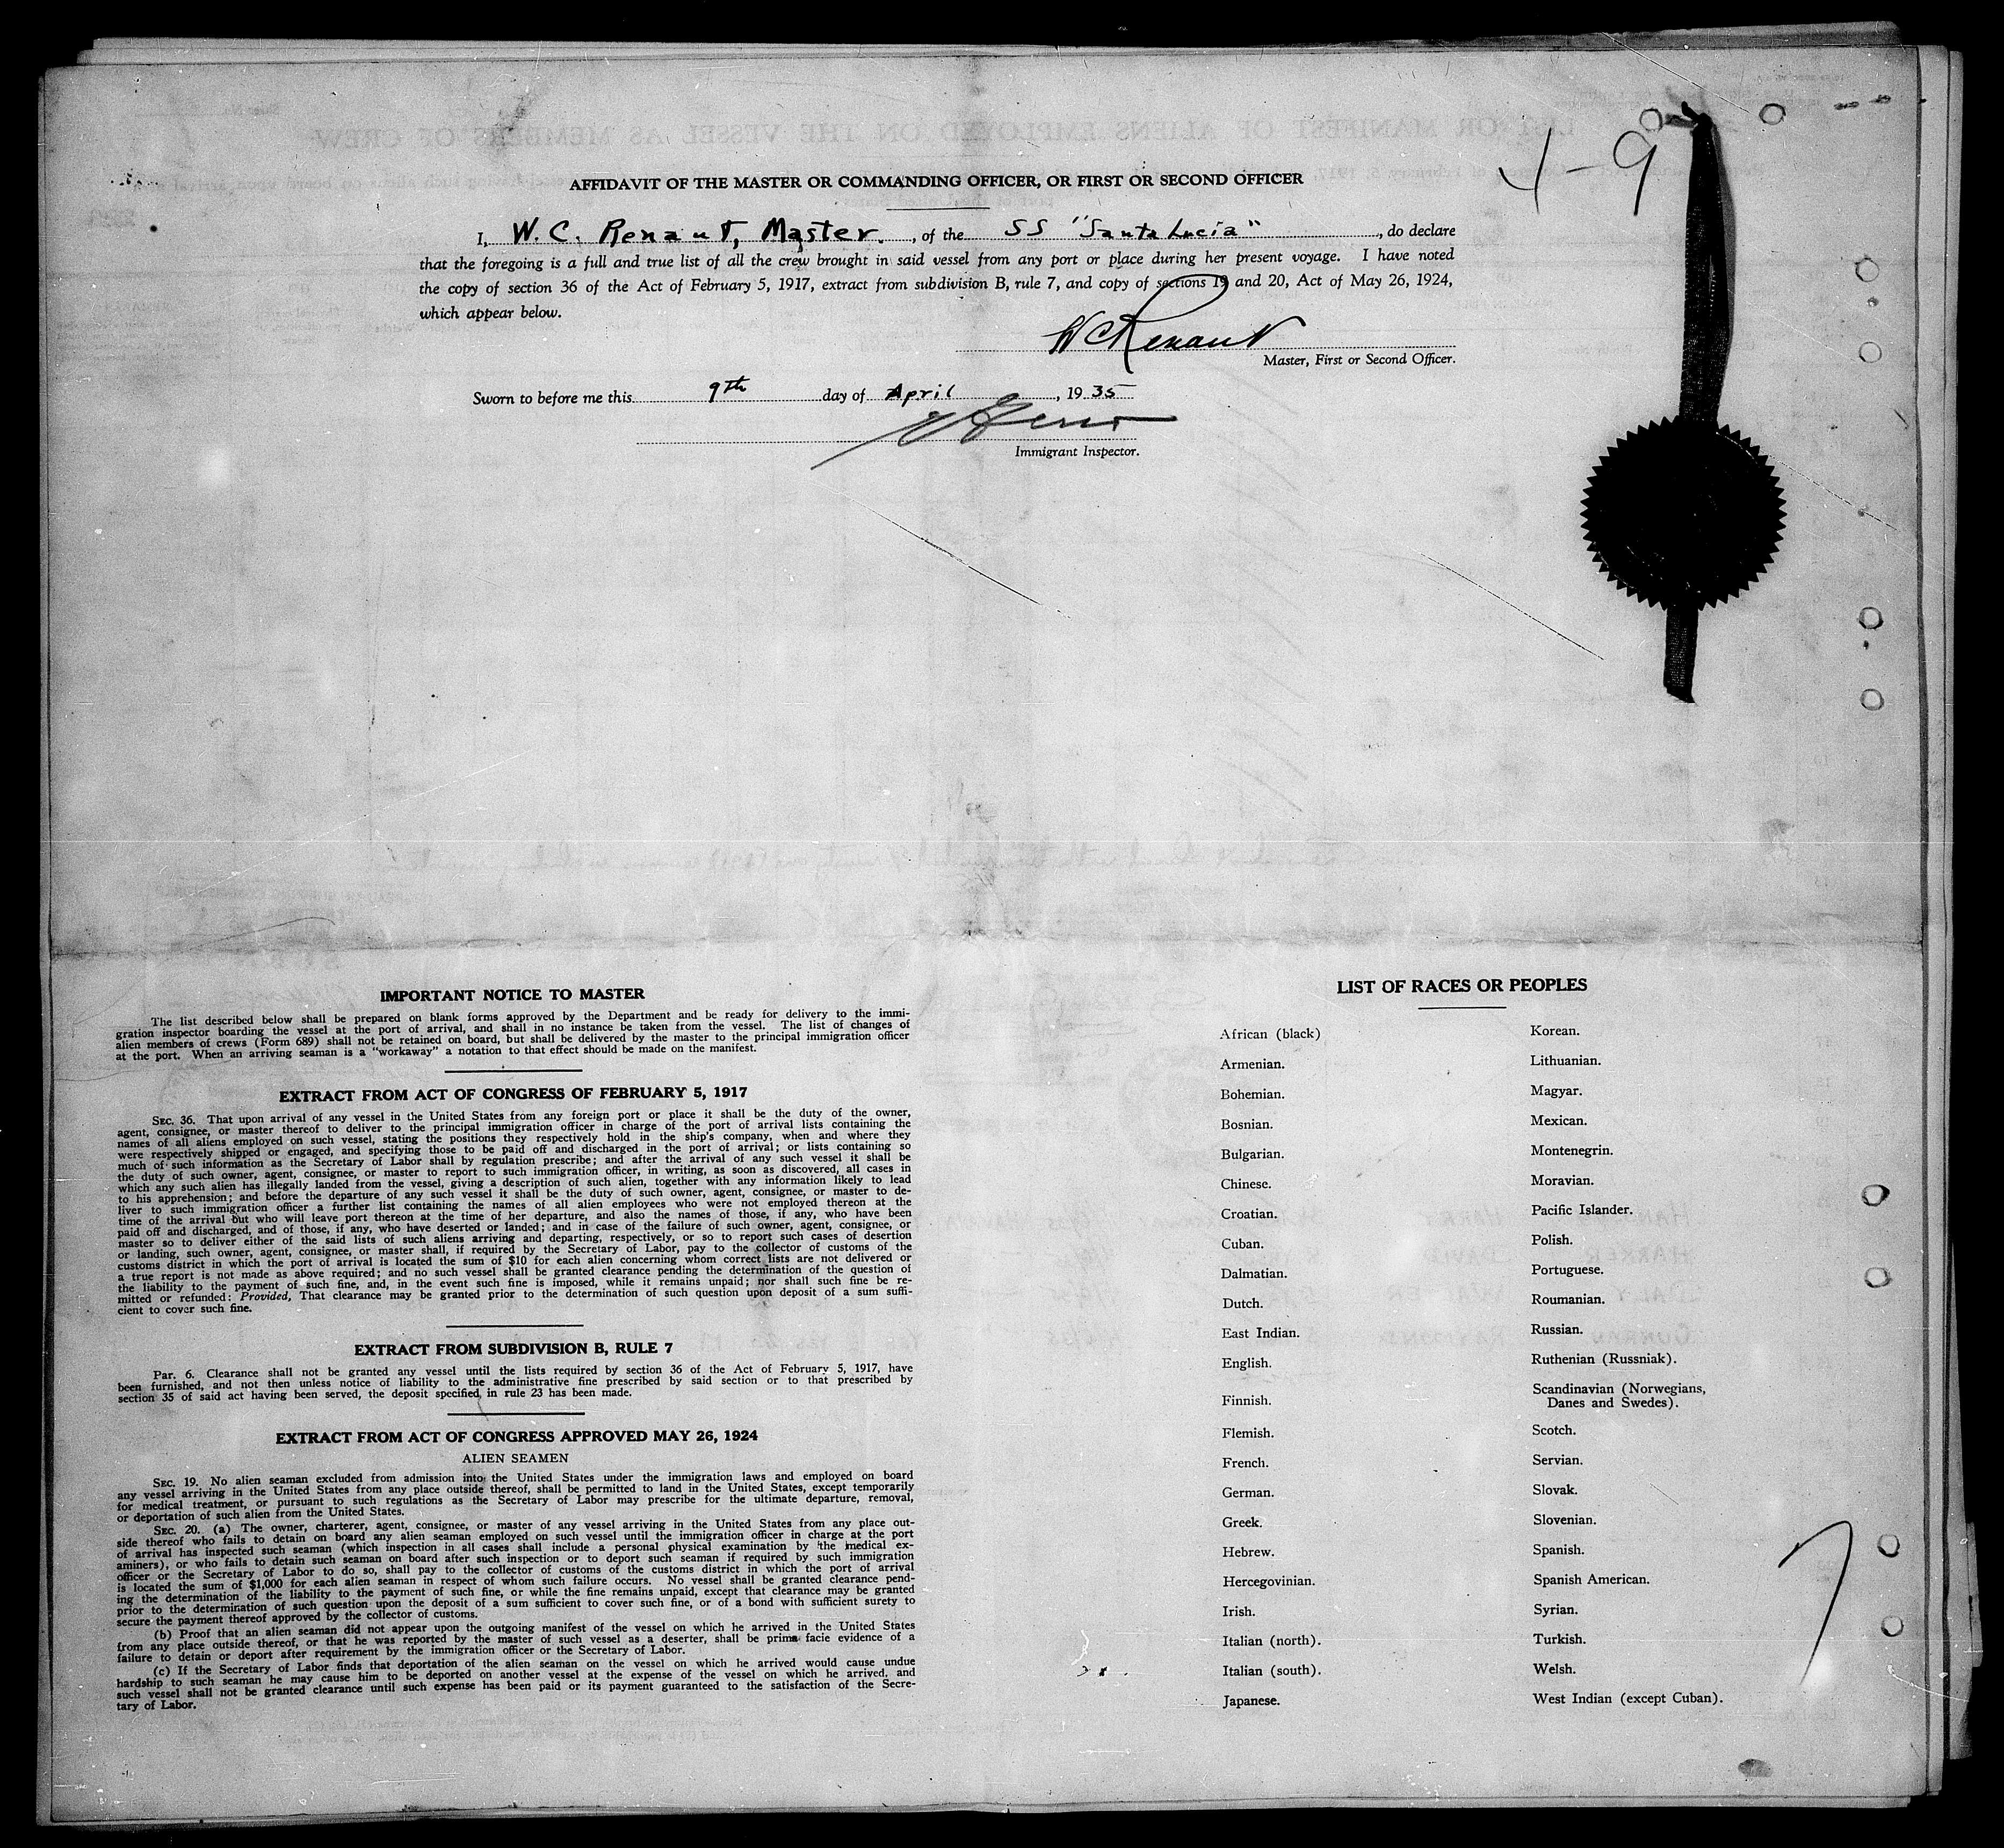 4-9
AFFIDAVIT OF THE MASTER OR COMMANDING OFFICER, OR FIRST OR SECOND OFFICER
I, W. C. Renaut, Master. , of the SS "Santa Lucia" , do declare
that the foregoing is a full and true list of all the crew brought in said vessel from any port or place during her present voyage. I have noted
the copy of section 36 of the Act of February 5, 1917, extract from subdivision B, rule 7, and copy of sections 19 and 20, Act of May 26, 1924,
which appear below.
W C Renaut
Master, First or Second Officer.
Sworn to before me this 9th day of April , 1935
Immigrant Inspector.
IMPORTANT NOTICE TO MASTER
The list described below shall be prepared on blank forms approved by the Department and be ready for delivery to the immi-
gration inspector boarding the vessel at the port of arrival, and shall in no instance be taken from the vessel. The list of changes of
alien members of crews (Form 689) shall not be retained on board, but shall be delivered by the master to the principal immigration officer
at the port. When an arriving seaman is a "workaway" a notation to that effect should be made on the manifest.
EXTRACT FROM ACT OF CONGRESS OF FEBRUARY 5, 1917
SEC. 36. That upon arrival of any vessel in the United States from any foreign port or place it shall be the duty of the owner,
agent, consignee, or master thereof to deliver to the principal immigration officer in charge of the port of arrival lists containing the
names of all aliens employed on such vessel, stating the positions they respectively hold in the ship's company, when and where they
were respectively shipped or engaged, and specifying those to be paid off and discharged in the port of arrival; or lists containing so
much of such information as the Secretary of Labor shall by regulation prescribe; and after the arrival of any such vessel it shall be
the duty of such owner, agent, consignee, or master to report to such immigration officer, in writing, as soon as discovered, all cases in
which any such alien has illegally landed from the vessel, giving a description of such alien, together with any information likely to lead
to his apprehension; and before the departure of any such vessel it shall be the duty of such owner, agent, consignee, or master to de-
liver to such immigration officer a further list containing the names of all alien employees who were not employed thereon at the
time of the arrival but who will leave port thereon at the time of her departure, and also the names of those, if any, who have been
paid off and discharged, and of those, if any, who have deserted or landed; and in case of the failure of such owner, agent, consignee, or
master so to deliver either of the said lists of such aliens arriving and departing, respectively, or so to report such cases of desertion
or landing, such owner, agent, consignee, or master shall, if required by the Secretary of Labor, pay to the collector of customs of the
customs district in which the port of arrival is located the sum of $10 for each alien concerning whom correct lists are not delivered or
a true report is not made as above required; and no such vessel shall be granted clearance pending the determination of the question of
the liability to the payment of such fine, and, in the event such fine is imposed, while it remains unpaid; nor shall such fine be re-
mitted or refunded: Provided, That clearance may be granted prior to the determination of such question upon deposit of a sum suffi-
cient to cover such fine.
EXTRACT FROM SUBDIVISION B, RULE 7
Par. 6. Clearance shall not be granted any vessel until the lists required by section 36 of the Act of February 5, 1917, have
been furnished, and not then unless notice of liability to the administrative fine prescribed by said section or to that prescribed by
section 35 of said act having been served, the deposit specified in rule 23 has been made.
EXTRACT FROM ACT OF CONGRESS APPROVED MAY 26, 1924
ALIEN SEAMEN
SEC. 19. No alien seaman excluded from admission into the United States under the immigration laws and employed on board
any vessel arriving in the United States from any place outside thereof, shall be permitted to land in the United States, except temporarily
for medical treatment, or pursuant to such regulations as the Secretary of Labor may prescribe for the ultimate departure, removal,
or deportation of such alien from the United States.
SEC. 20. (a) The owner, charterer, agent, consignee, or master of any vessel arriving in the United States from any place out-
side thereof who fails to detain on board any alien seaman employed on such vessel until the immigration officer in charge at the port
of arrival has inspected such seaman (which inspection in all cases shall include a personal physical examination by the medical ex-
aminers), or who fails to detain such seaman on board after such inspection or to deport such seaman if required by such immigration
officer or the Secretary of Labor to do so, shall pay to the collector of customs of the customs district in which the port of arrival
is located the sum of $1,000 for each alien seaman in respect of whom such failure occurs. No vessel shall be granted clearance pend-
ing the determination of the liability to the payment of such fine, or while the fine remains unpaid, except that clearance may be granted
prior to the determination of such question upon the deposit of a sum sufficient to cover such fine, or of a bond with sufficient surety to
secure the payment thereof approved by the collector of customs.
(b) Proof that an alien seaman did not appear upon the outgoing manifest of the vessel on which he arrived in the United States
from any place outside thereof, or that he was reported by the master of such vessel as a deserter, shall be prima facie evidence of a
failure to detain or deport after requirement by the immigration officer or the Secretary of Labor.
(c) If the Secretary of Labor finds that deportation of the alien seaman on the vessel on which he arrived would cause undue
hardship to such seaman he may cause him to be deported on another vessel at the expense of the vessel on which he arrived, and
such vessel shall not be granted clearance until such expense has been paid or its payment guaranteed to the satisfaction of the Secre-
tary of Labor.
LIST OF RACES OR PEOPLES
African (black)
Armenian.
Bohemian.
Bosnian.
Bulgarian.
Chinese.
Croatian.
Cuban.
Dalmatian.
Dutch.
East Indian.
English.
Finnish.
Flemish.
French.
German.
Greek.
Hebrew.
Hercegovinian.
Irish.
Italian (north).
Italian (south).
Japanese.
Korean.
Lithuanian.
Magyar.
Mexican.
Montenegrin.
Moravian.
Pacific Islander.
Polish.
Portuguese.
Roumanian.
Russian.
Ruthenian (Russniak).
Scandinavian (Norwegians,
Danes and Swedes).
Scotch.
Servian.
Slovak.
Slovenian.
Spanish.
Spanish American.
Syrian.
Turkish.
Welsh.
West Indian (except Cuban).
7